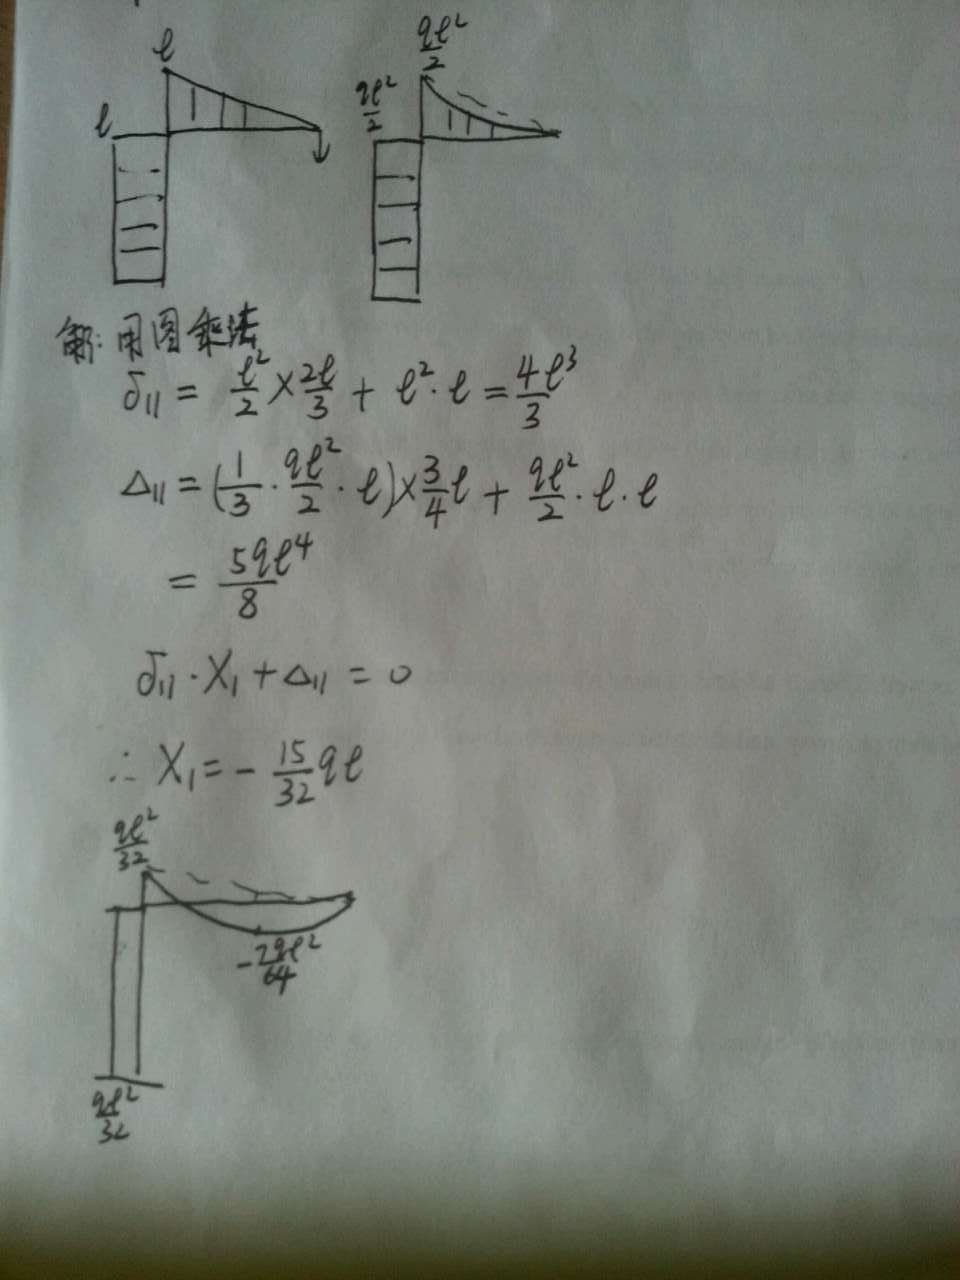 l
l
ql²/2
ql²/2
解：用图乘法
δ₁₁ = l²/2 × 2l/3 + l²·l = 4l³/3
Δ₁₁ = (1/3 · ql²/2 · l) × 3/4 l + ql²/2 · l · l
= 5ql⁴/8
δ₁₁·X₁ + Δ₁₁ = 0
∴ X₁ = - 15/32 ql
ql²/32
ql²/32